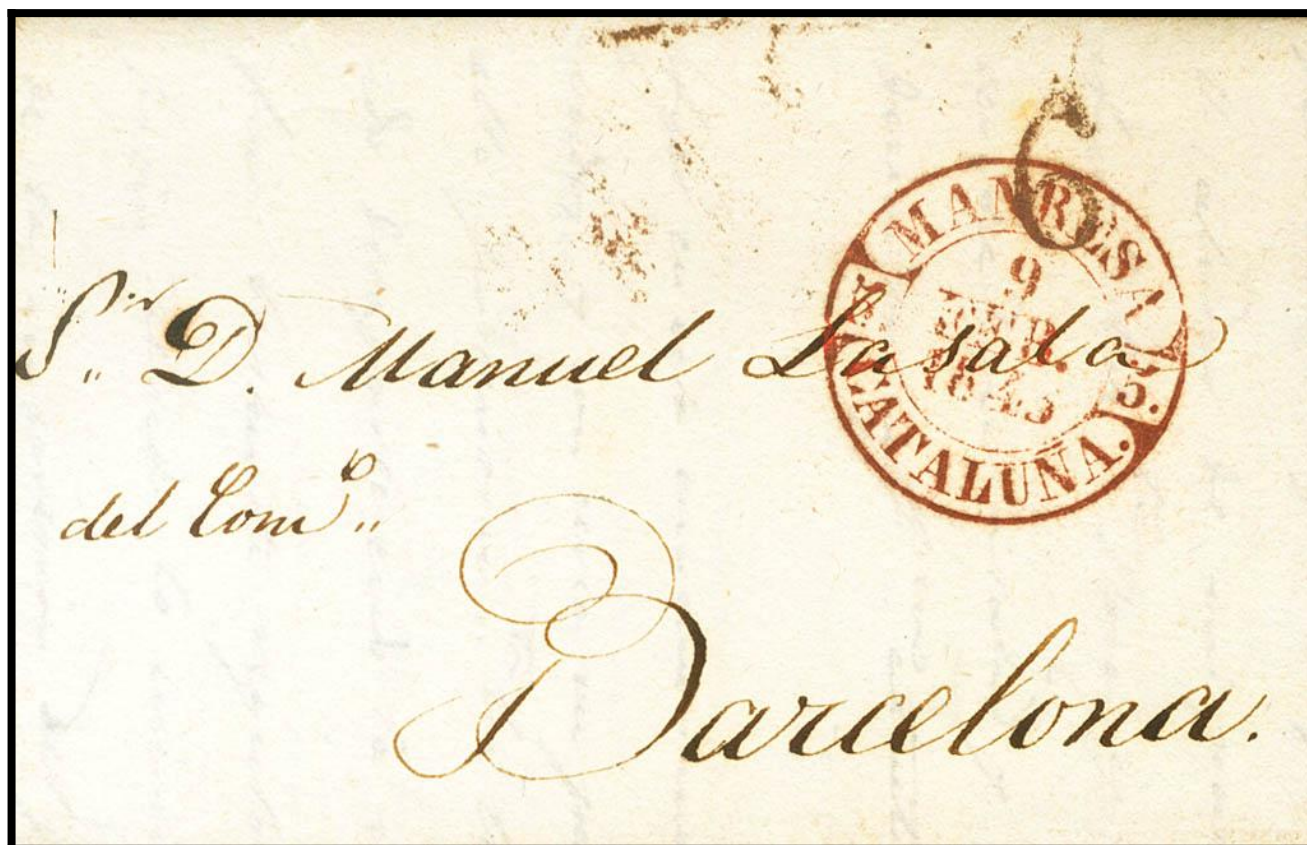 6
MANRESA
9
1843
15.
CATALUÑA.
Sr. D. Manuel Lasala
del Comº
Barcelona.